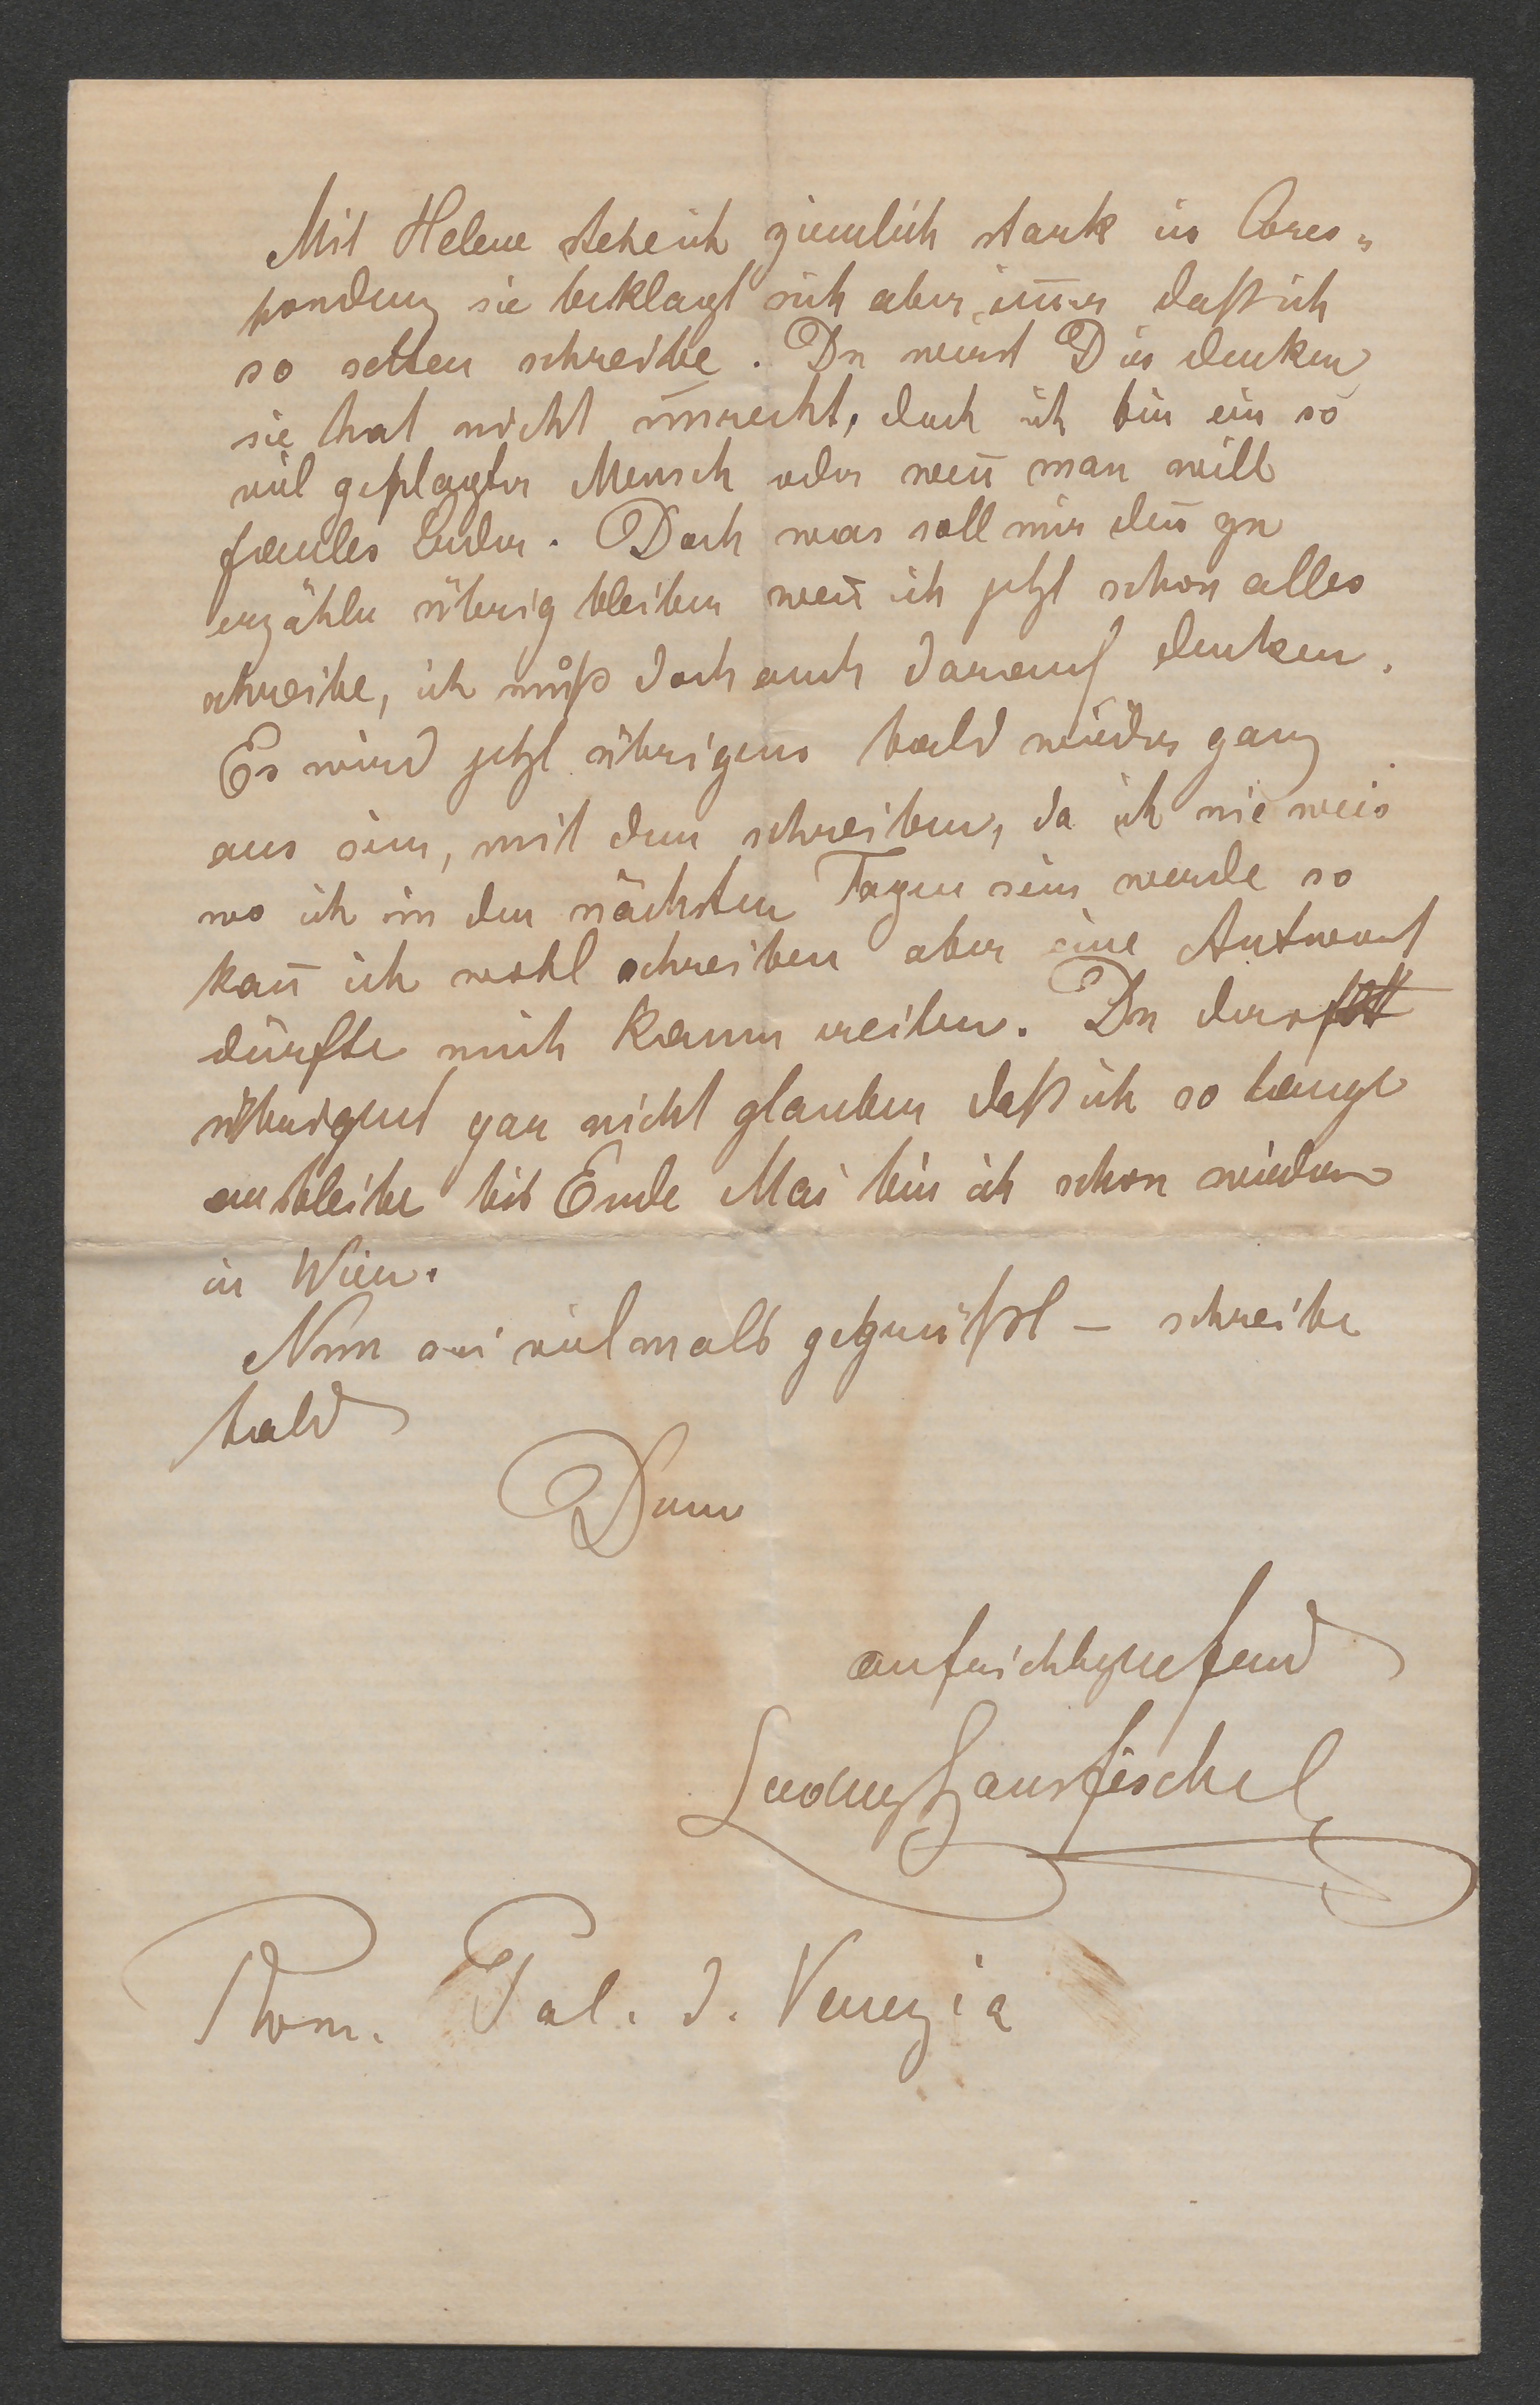 Mit Helene stehe ich ziemlich stark in Cores=
pondenz sie beklagt sich aber im̄er daß ich
so selten schreibe. Du wirst Dir denken
sie hat nicht unrecht, doch ich bin ein so
viel geplagter Mensch oder wen̄ man will
faules Luder. Doch was soll mir den̄ zu
erzählen übrig bleiben wen̄ ich jetzt schon alles
schreibe, ich muß doch auch darauf denken.
Es wird jetzt übrigens bald wieder ganz
aus sein, mit dem schreiben, da ich nie weis
wo ich in den nächsten Tagen sein werde so
kan̄ ich wohl schreiben aber eine Antwort
dürfte mich kaum ereilen. Du darfst
übrigens gar nicht glauben daß ich so lange
ausbleibe bis Ende Mai bin ich schon wieder
in Wien.
Nun sei vielmals gegrüßt – schreibe
bald
Deinem
aufrichtigen
Ludwig Hans Fischer
Rom. Pal. d. Venezia